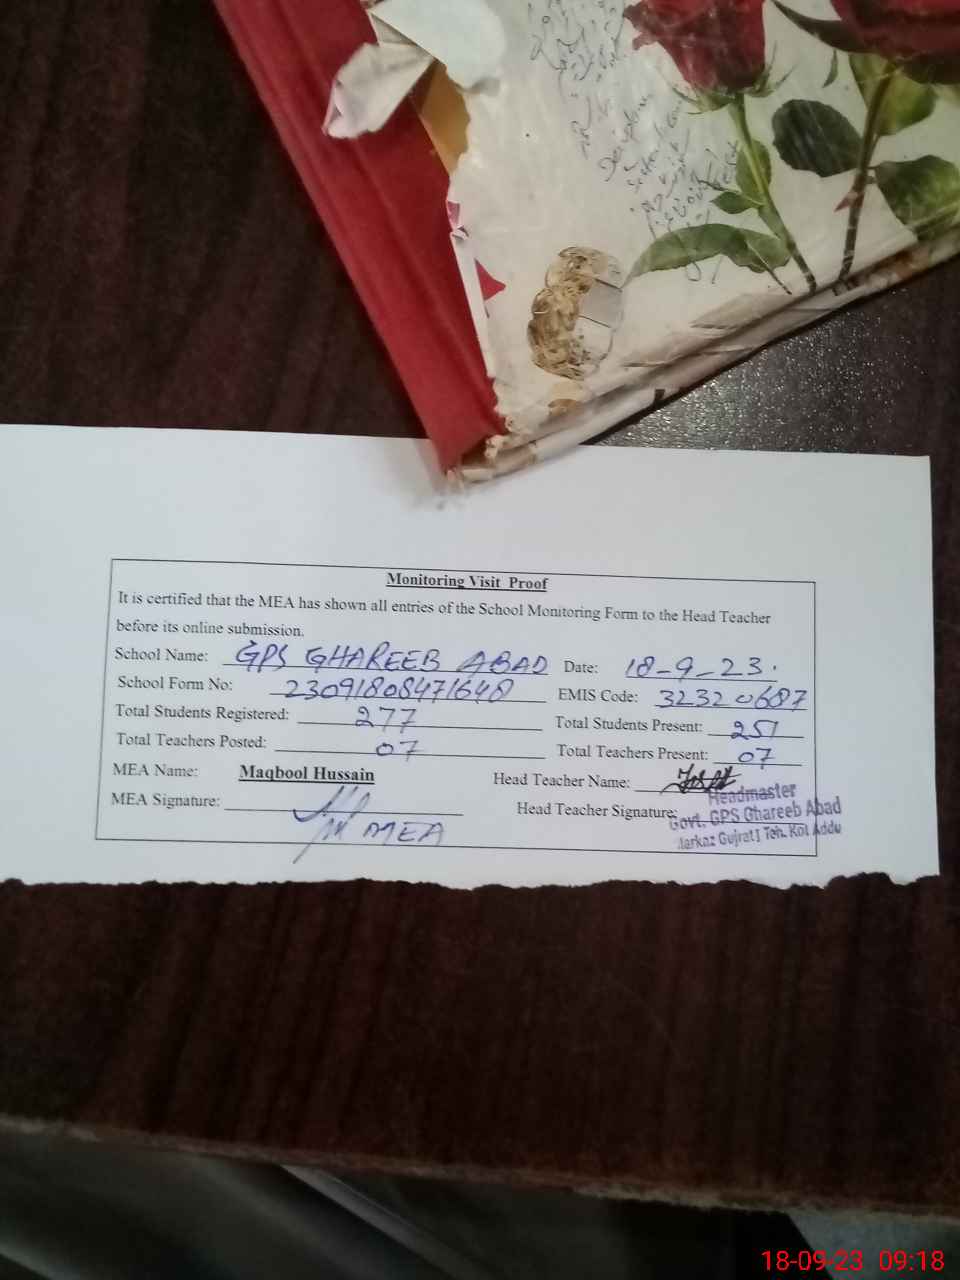 Monitoring Visit Proof
It is certified that the MEA has shown all entries of the School Monitoring Form to the Head Teacher
before its online submission.
School Name: GPS GHAREEB ABAD Date: 18-9-23.
School Form No: 23091808471648 EMIS Code: 32320687
Total Students Registered: 277 Total Students Present: 251
Total Teachers Posted: 07 Total Teachers Present: 07
MEA Name: Maqbool Hussain Head Teacher Name:
MEA Signature: Head Teacher Signature:
MEA
Headmaster
Govt. GPS Ghareeb Abad
Markaz Gujrat I Teh. Kot Addu
18-09-23 09:18